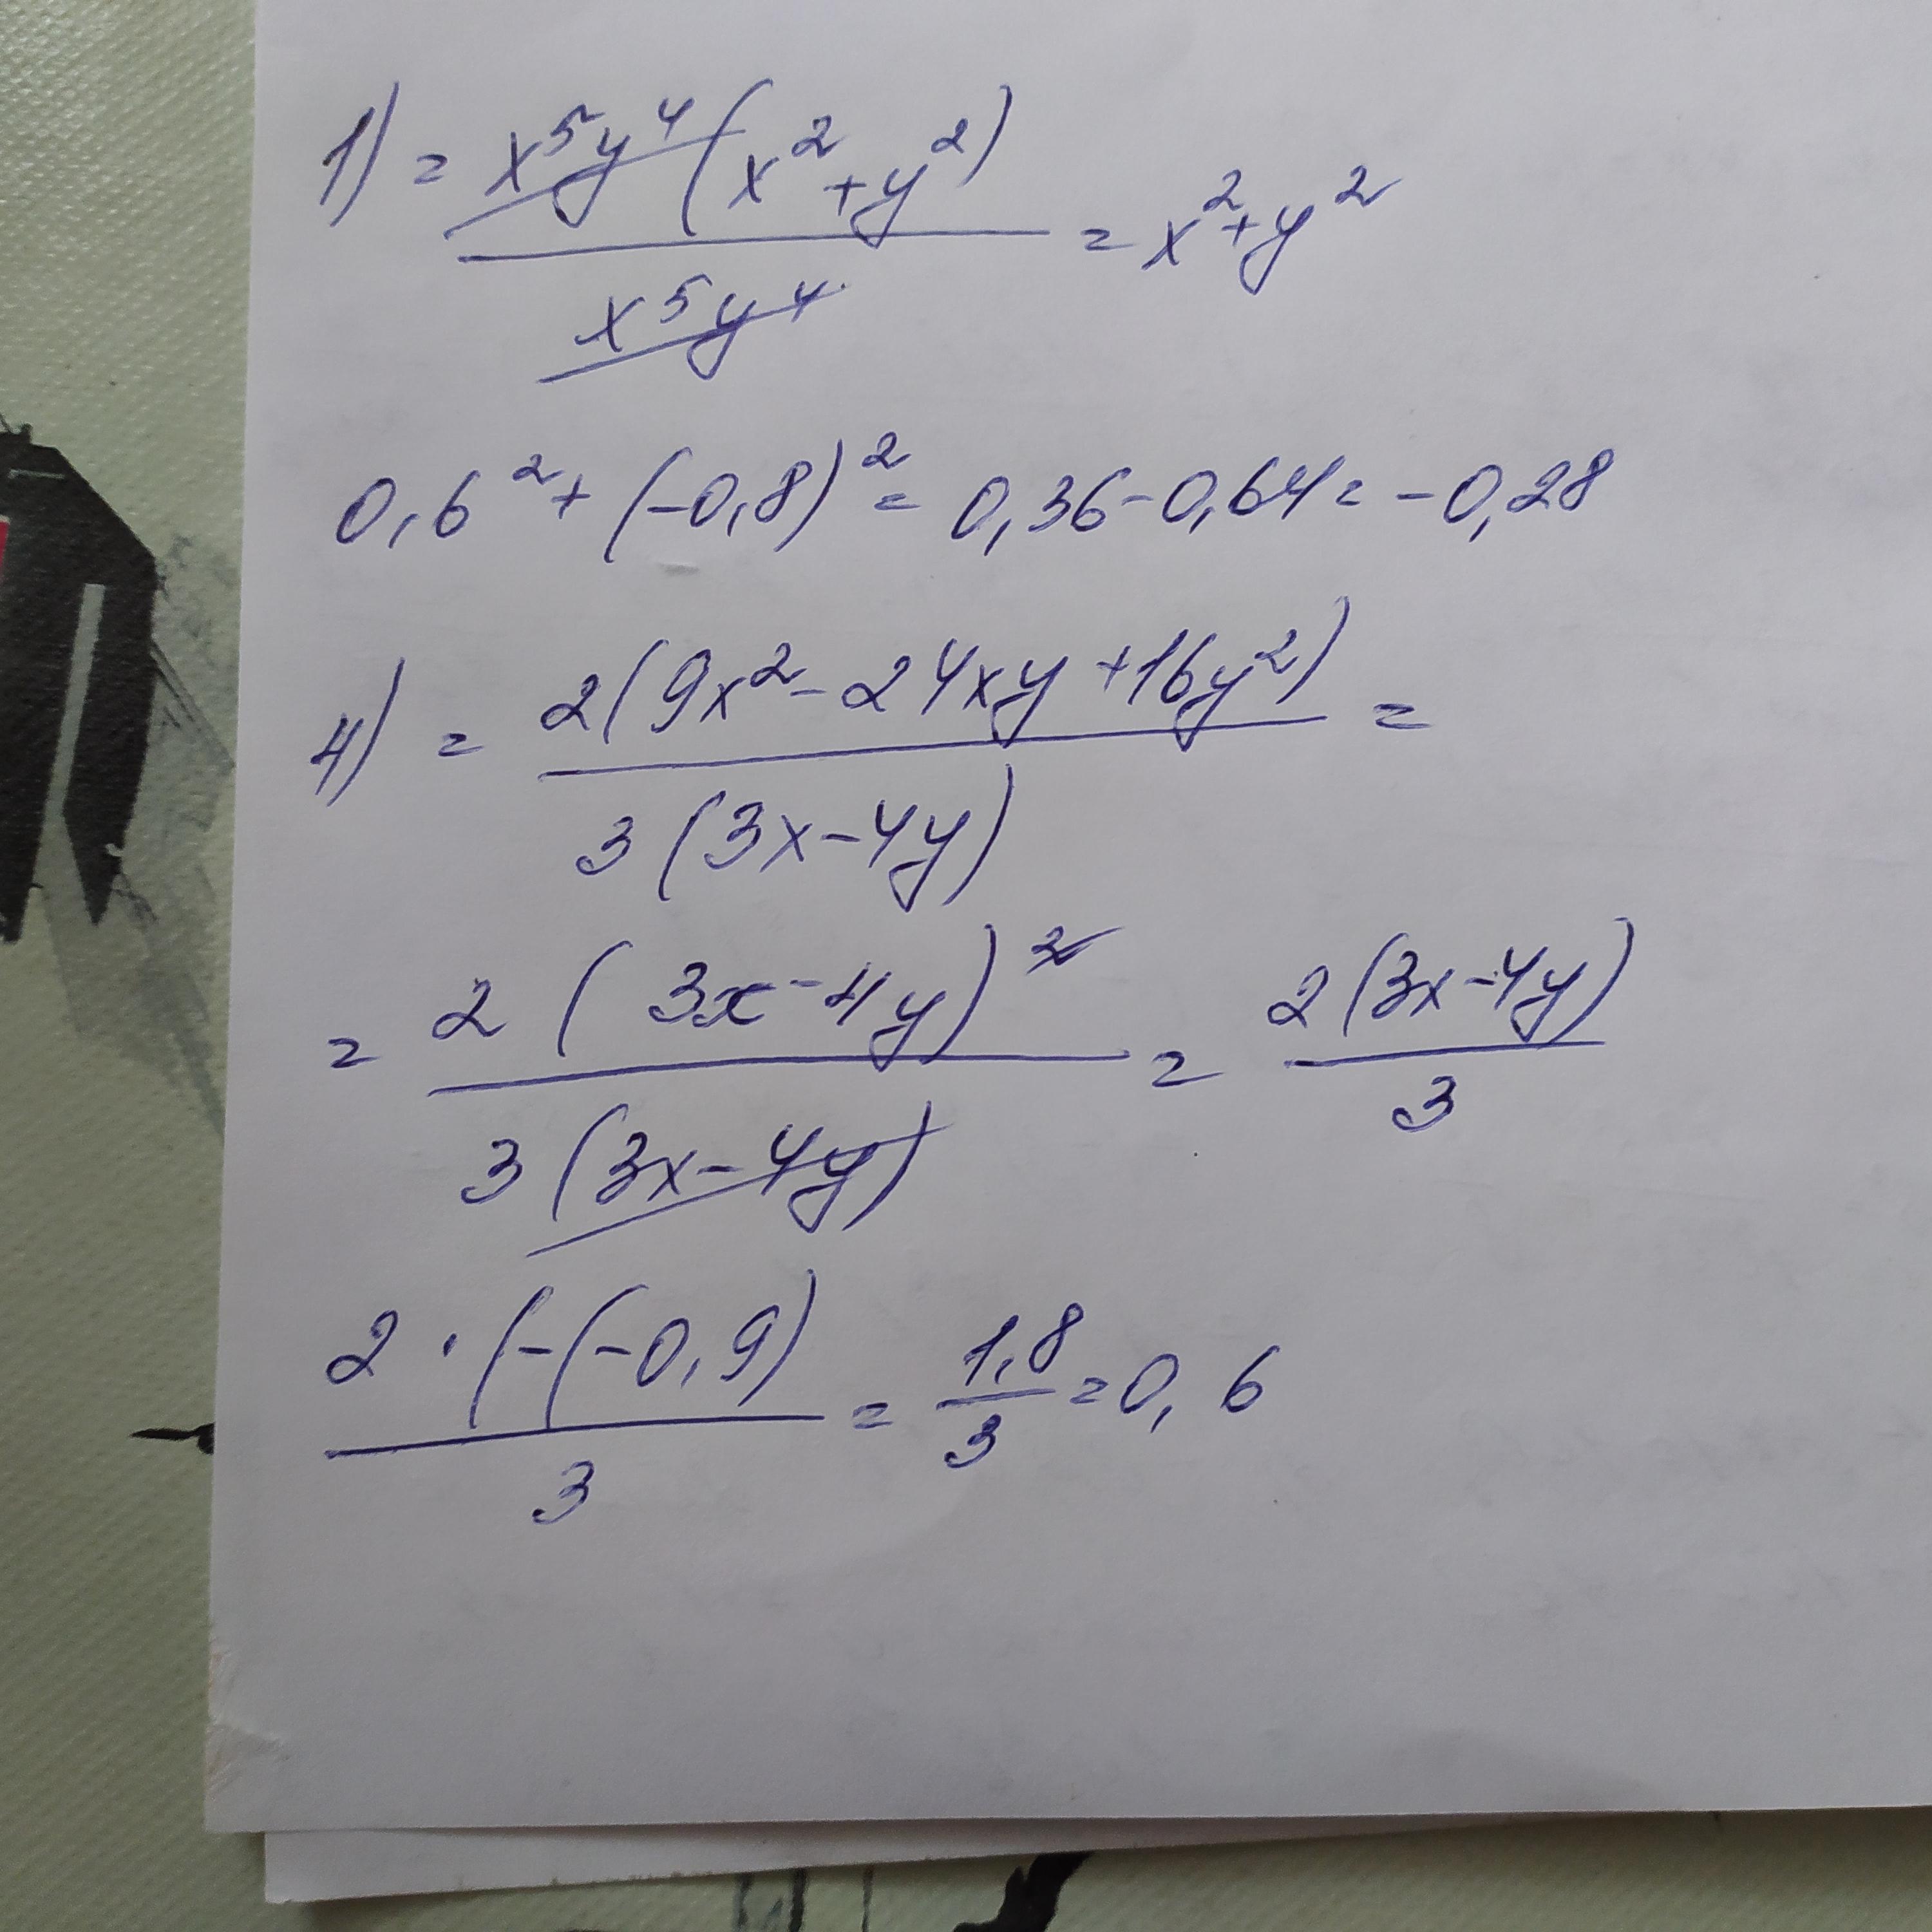 1) = x⁵y⁴(x²+y²) / x⁵y⁴ = x²+y²
0,6² + (-0,8)² = 0,36 - 0,64 = -0,28
4) = 2(9x² - 24xy + 16y²) / 3(3x-4y) =
= 2(3x-4y)² / 3(3x-4y) = 2(3x-4y) / 3
2 · (-(-0,9) / 3 = 1,8 / 3 = 0,6